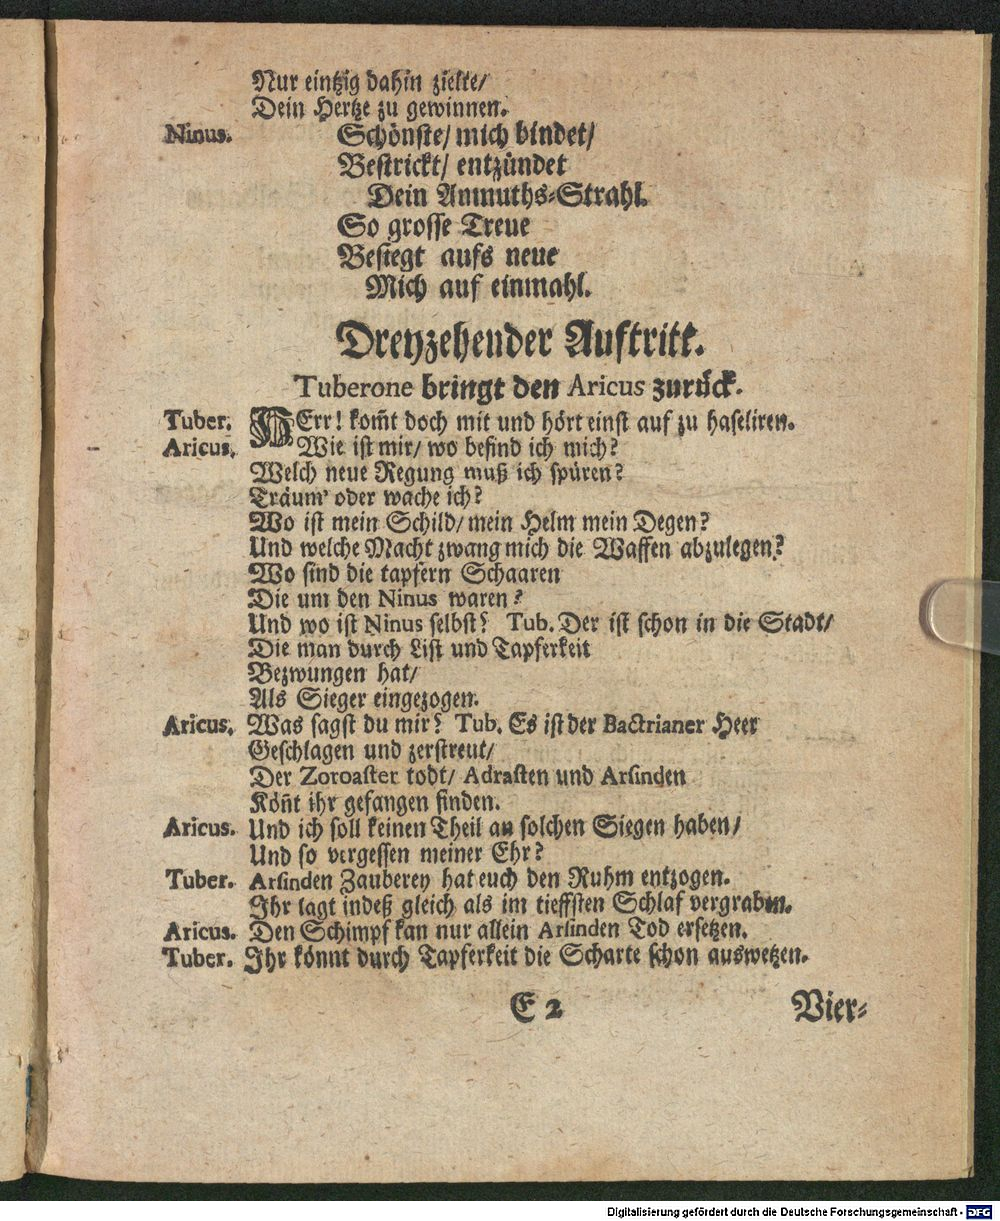 Nur eintzig dahin zielte/
Dein Hertze zu gewinnen.
Ninus. Schönste/ mich bindet/
Bestrickt/ entzündet
Dein Anmuths-Strahl.
So grosse Treue
Besiegt aufs neue
Mich auf einmahl.
Dreyzehender Auftritt.
Tuberone bringt den Aricus zurück.
Tuber. HErr! kom̃t doch mit und hört einst auf zu haseliren.
Aricus. Wie ist mir/ wo befind ich mich?
Welch neue Regung muß ich spüren?
Träum' oder wache ich?
Wo ist mein Schild/ mein Helm mein Degen?
Und welche Macht zwang mich die Waffen abzulegen?
Wo sind die tapfern Schaaren
Die um den Ninus waren?
Und wo ist Ninus selbst? Tub. Der ist schon in die Stadt/
Die man durch List und Tapferkeit
Bezwungen hat/
Als Sieger eingezogen.
Aricus. Was sagst du mir? Tub. Es ist der Bactrianer Heer
Geschlagen und zerstreut/
Der Zoroaster todt/ Adrasten und Arsinden
Kön̄t ihr gefangen finden.
Aricus. Und ich soll keinen Theil an solchen Siegen haben/
Und so vergessen meiner Ehr?
Tuber. Arsinden Zauberey hat euch den Ruhm entzogen.
Ihr lagt indeß gleich als im tieffsten Schlaf vergraben.
Aricus. Den Schimpf kan nur allein Arsinden Tod ersetzen.
Tuber. Ihr könnt durch Tapferkeit die Scharte schon auswetzen.
E 2 Vier-
Digitalisierung gefördert durch die Deutsche Forschungsgemeinschaft - DFG